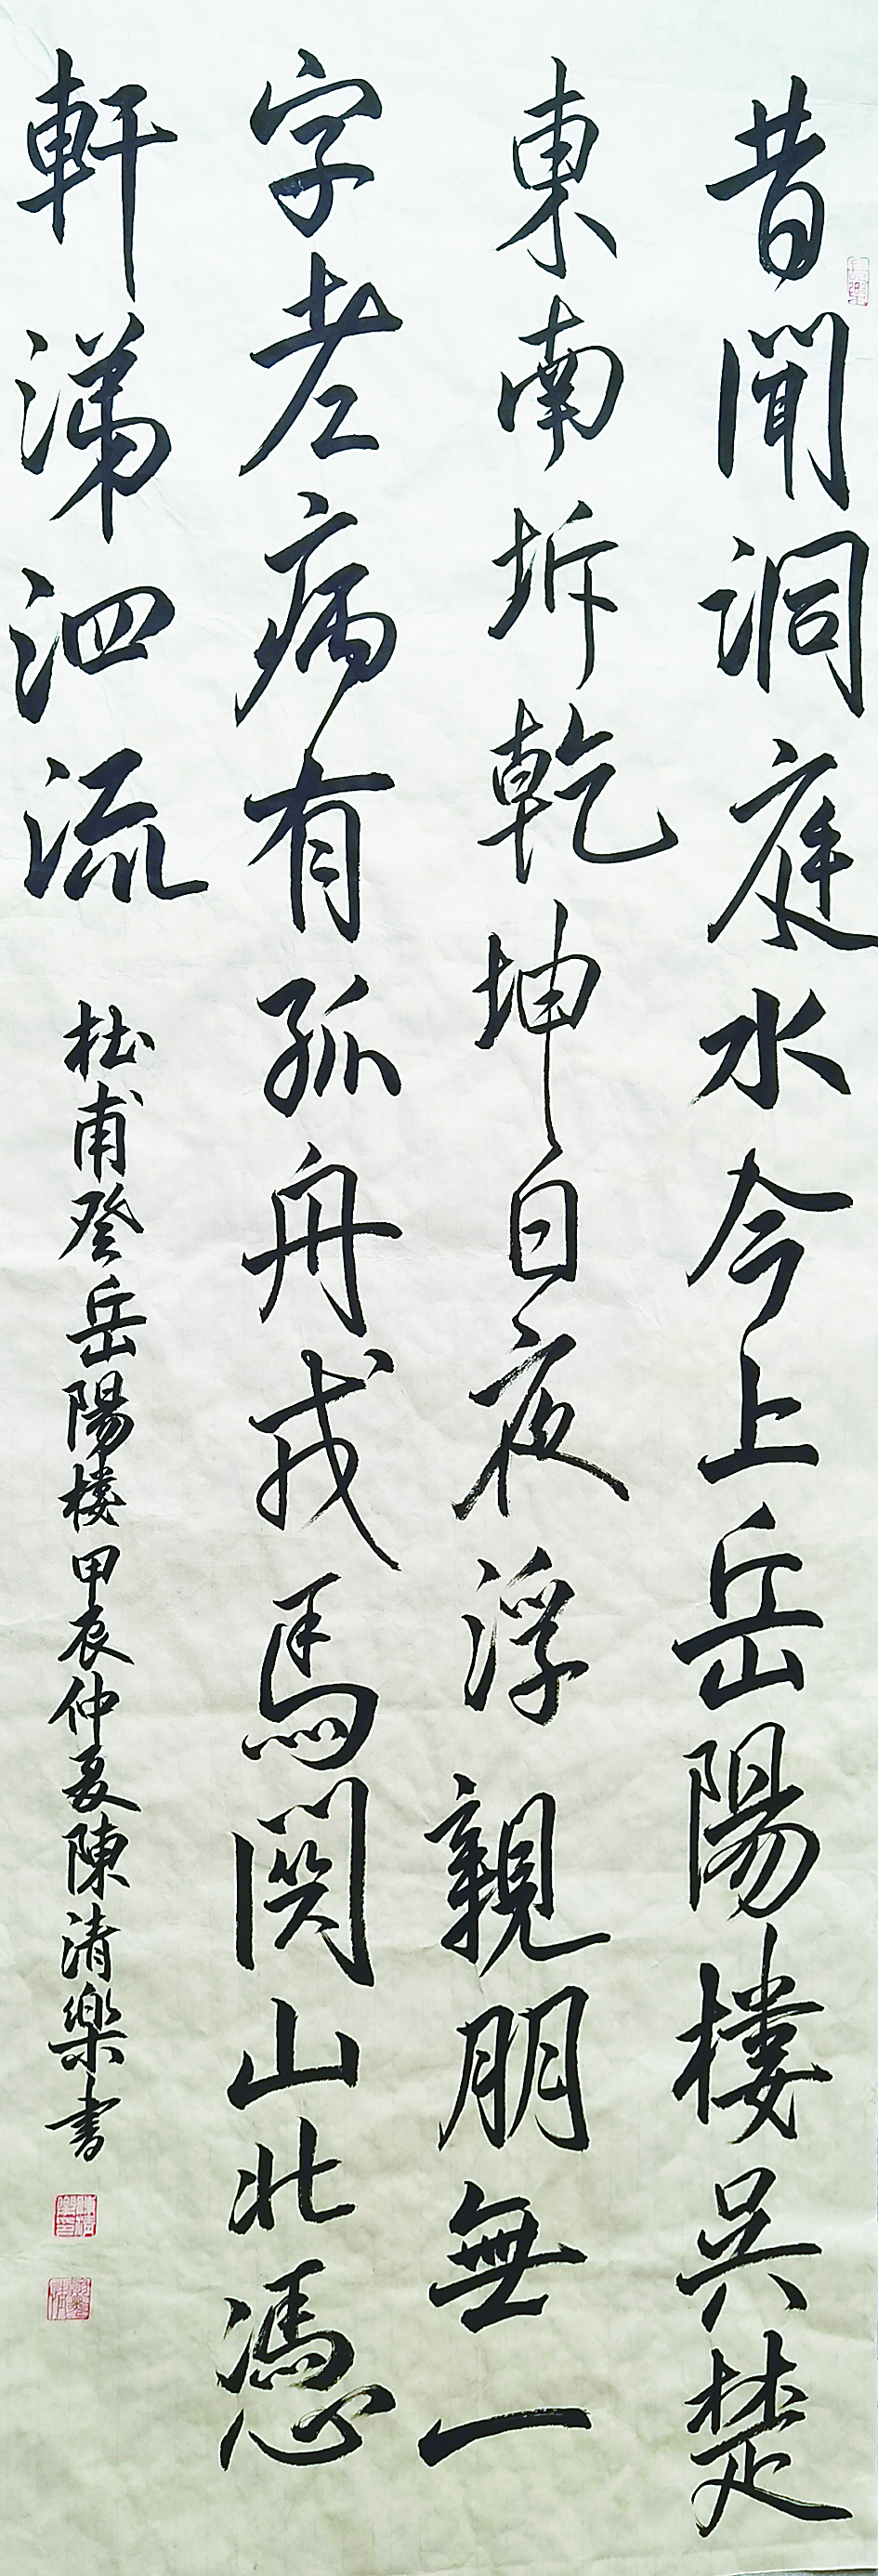 昔聞洞庭水今上岳陽樓吳楚
東南坼乾坤日夜浮親朋無一
字老病有孤舟戎馬関山北憑
軒涕泗流
杜甫登岳陽樓 甲辰仲夏陳清樂書